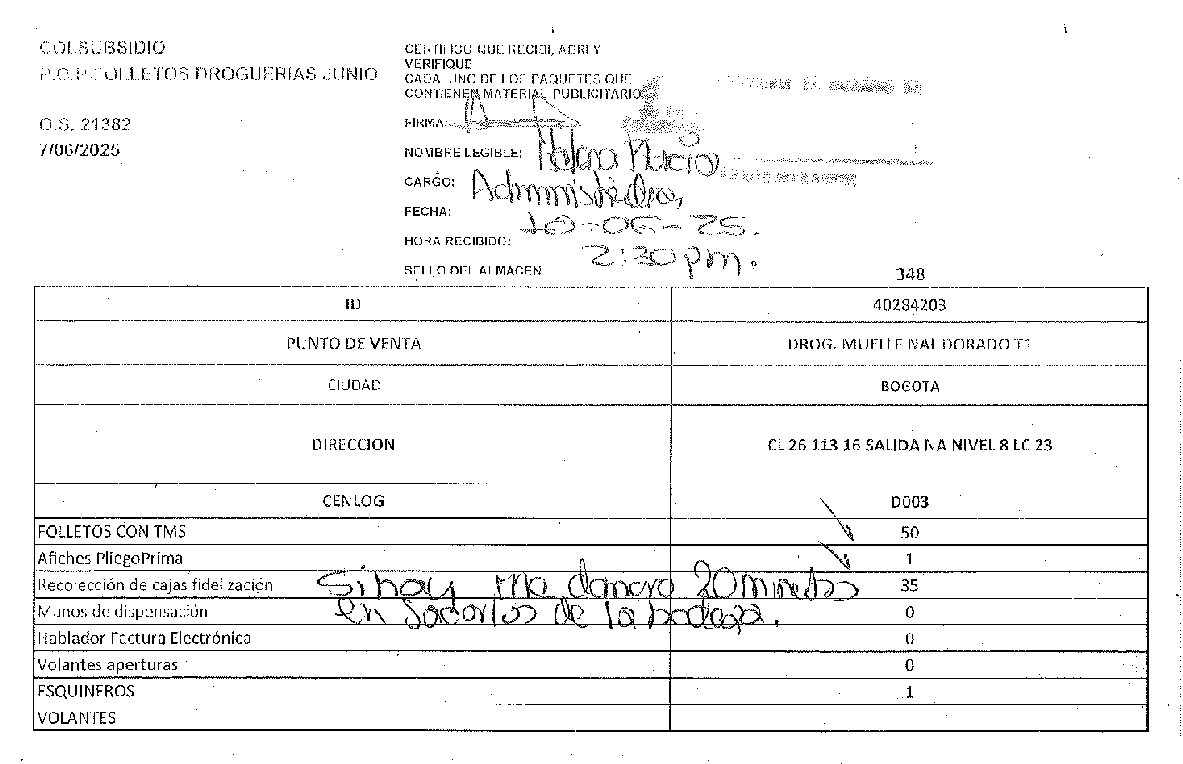 COLSUBSIDIO
P.O.P FOLLETOS DROGUERIAS JUNIO
O.S. 21382
7/06/2025
CERTIFICO QUE RECIBI, ABRI Y
VERIFIQUE
CADA UNO DE LOS PAQUETES QUE
CONTIENEN MATERIAL PUBLICITARIO
FIRMA:
NOMBRE LEGIBLE:
CARGO:
FECHA: 10-06-25.
HORA RECIBIDO: 2:30 pm.
SELLO DEL ALMACEN
348
ID 40284203
PUNTO DE VENTA DROG. MUELLE NAL DORADO T1
CIUDAD BOGOTA
DIRECCION CL 26 113 16 SALIDA NA NIVEL 8 LC 23
CENLOG D003
FOLLETOS CON TMS 50
Afiches PliegoPrima 1
Recolección de cajas fidelización 35
Si hay me demoro 20 minutos
en sacarlos de la bodega.
Manos de dispensación 0
Hablador Factura Electrónica 0
Volantes aperturas 0
ESQUINEROS 1
VOLANTES